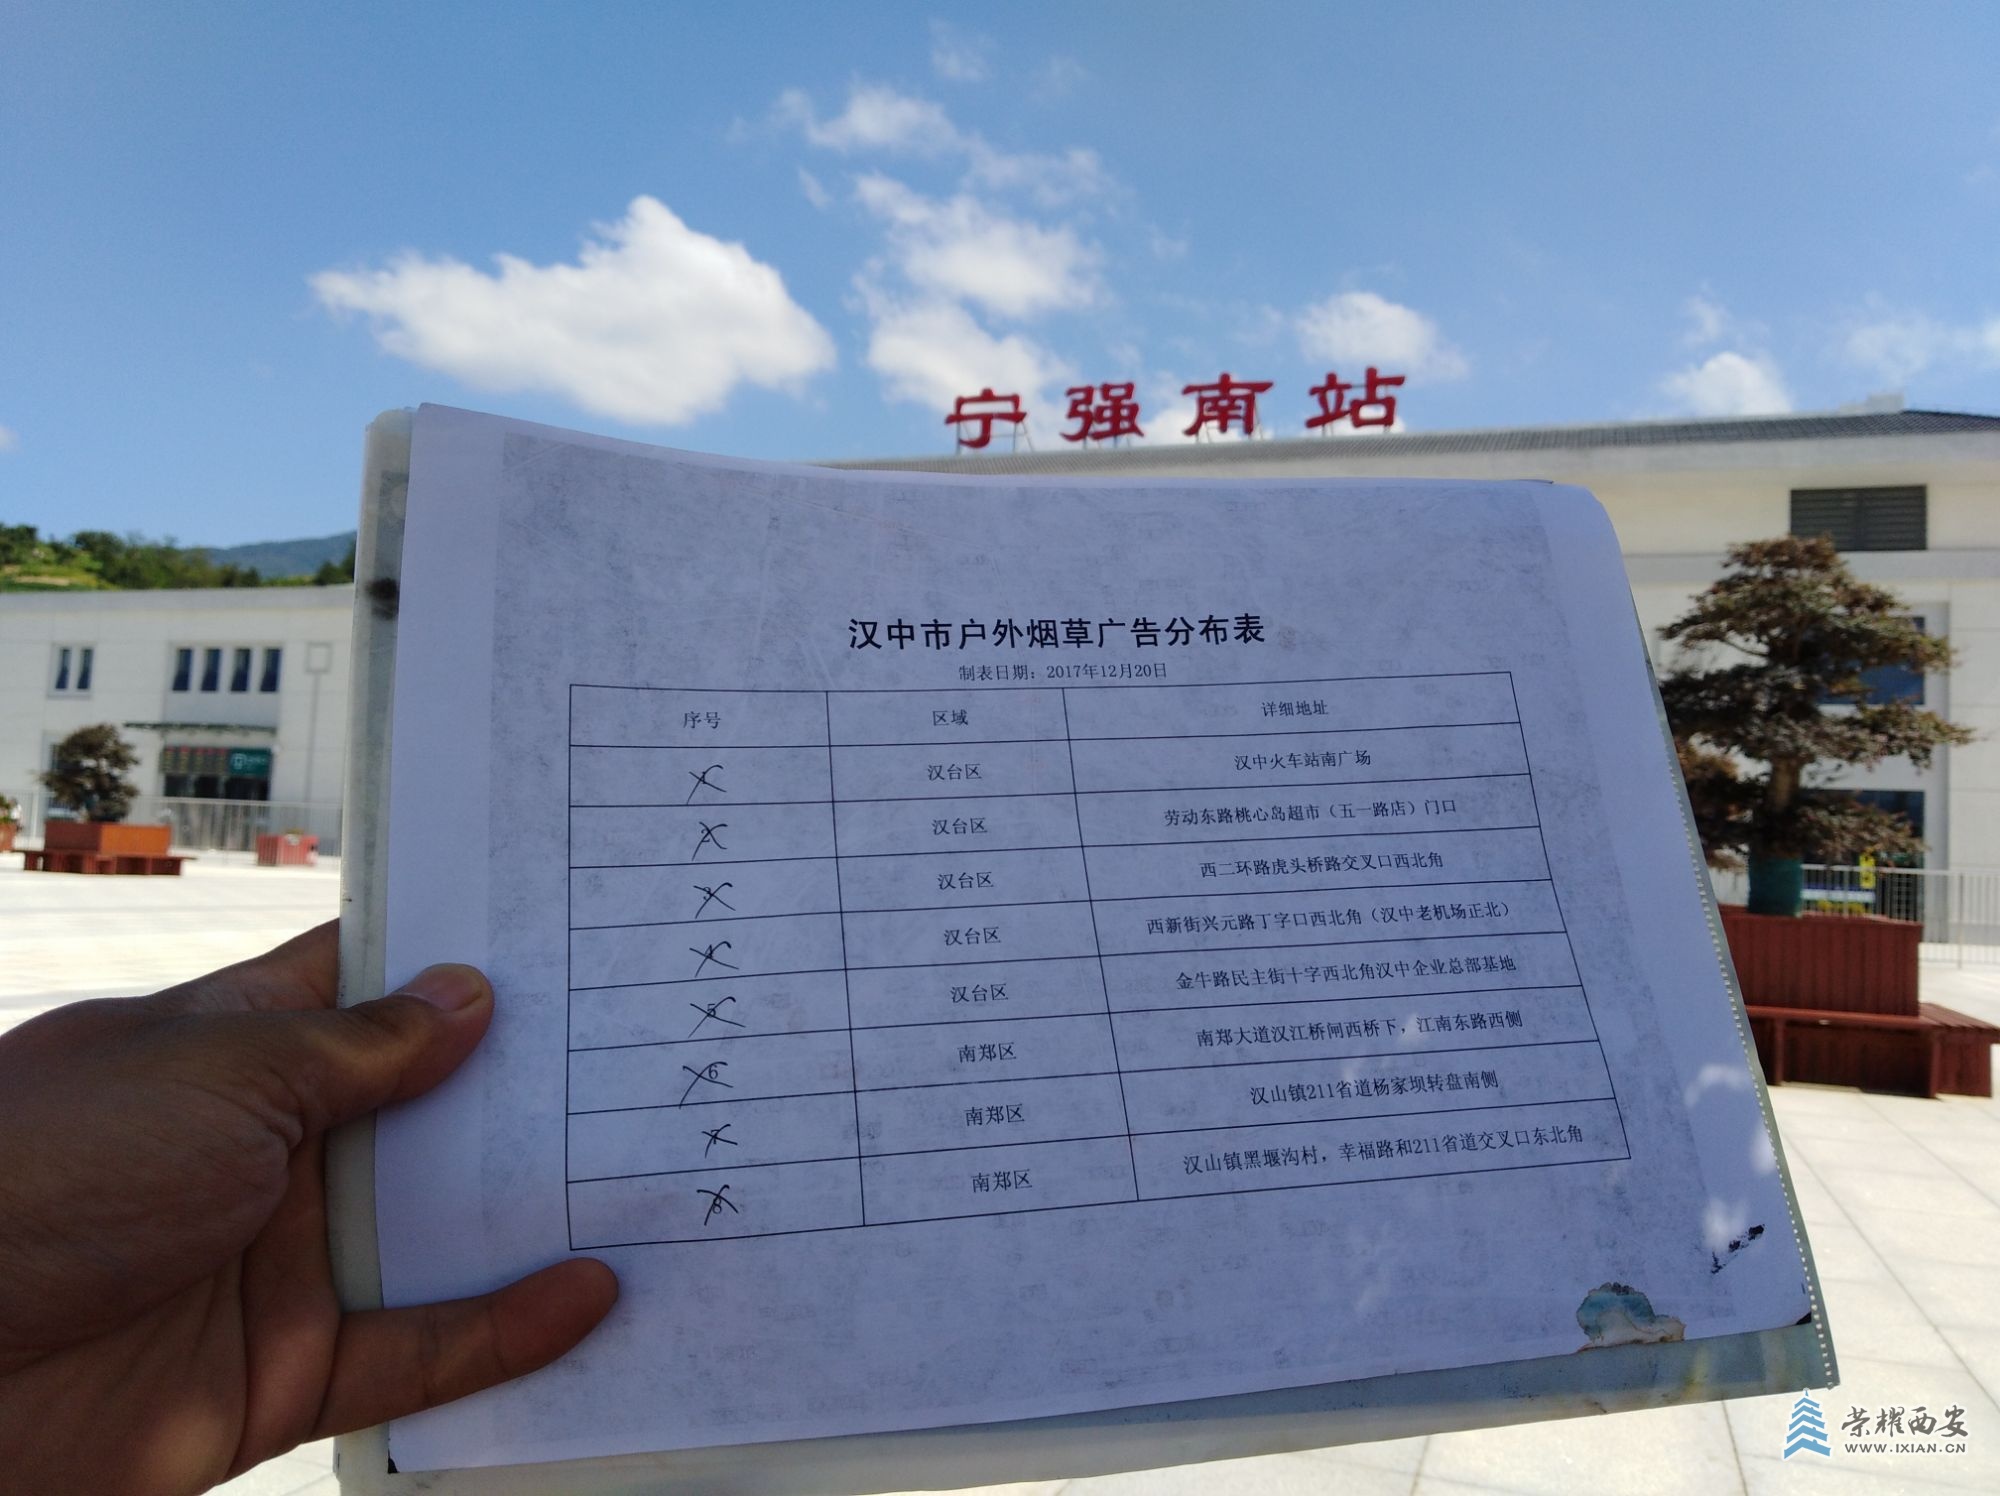 宁强南站
汉中市户外烟草广告分布表
制表日期：2017年12月20日
序号 区域 详细地址
1 汉台区 汉中火车站南广场
2 汉台区 劳动东路桃心岛超市（五一路店）门口
3 汉台区 西二环路虎头桥路交叉口西北角
4 汉台区 西新街兴元路丁字口西北角（汉中老机场正北）
5 汉台区 金牛路民主街十字西北角汉中企业总部基地
6 南郑区 南郑大道汉江桥闸西桥下，江南东路西侧
7 南郑区 汉山镇211省道杨家坝转盘南侧
8 南郑区 汉山镇黑堰沟村，幸福路和211省道交叉口东北角
荣耀西安
WWW.IXIAN.CN